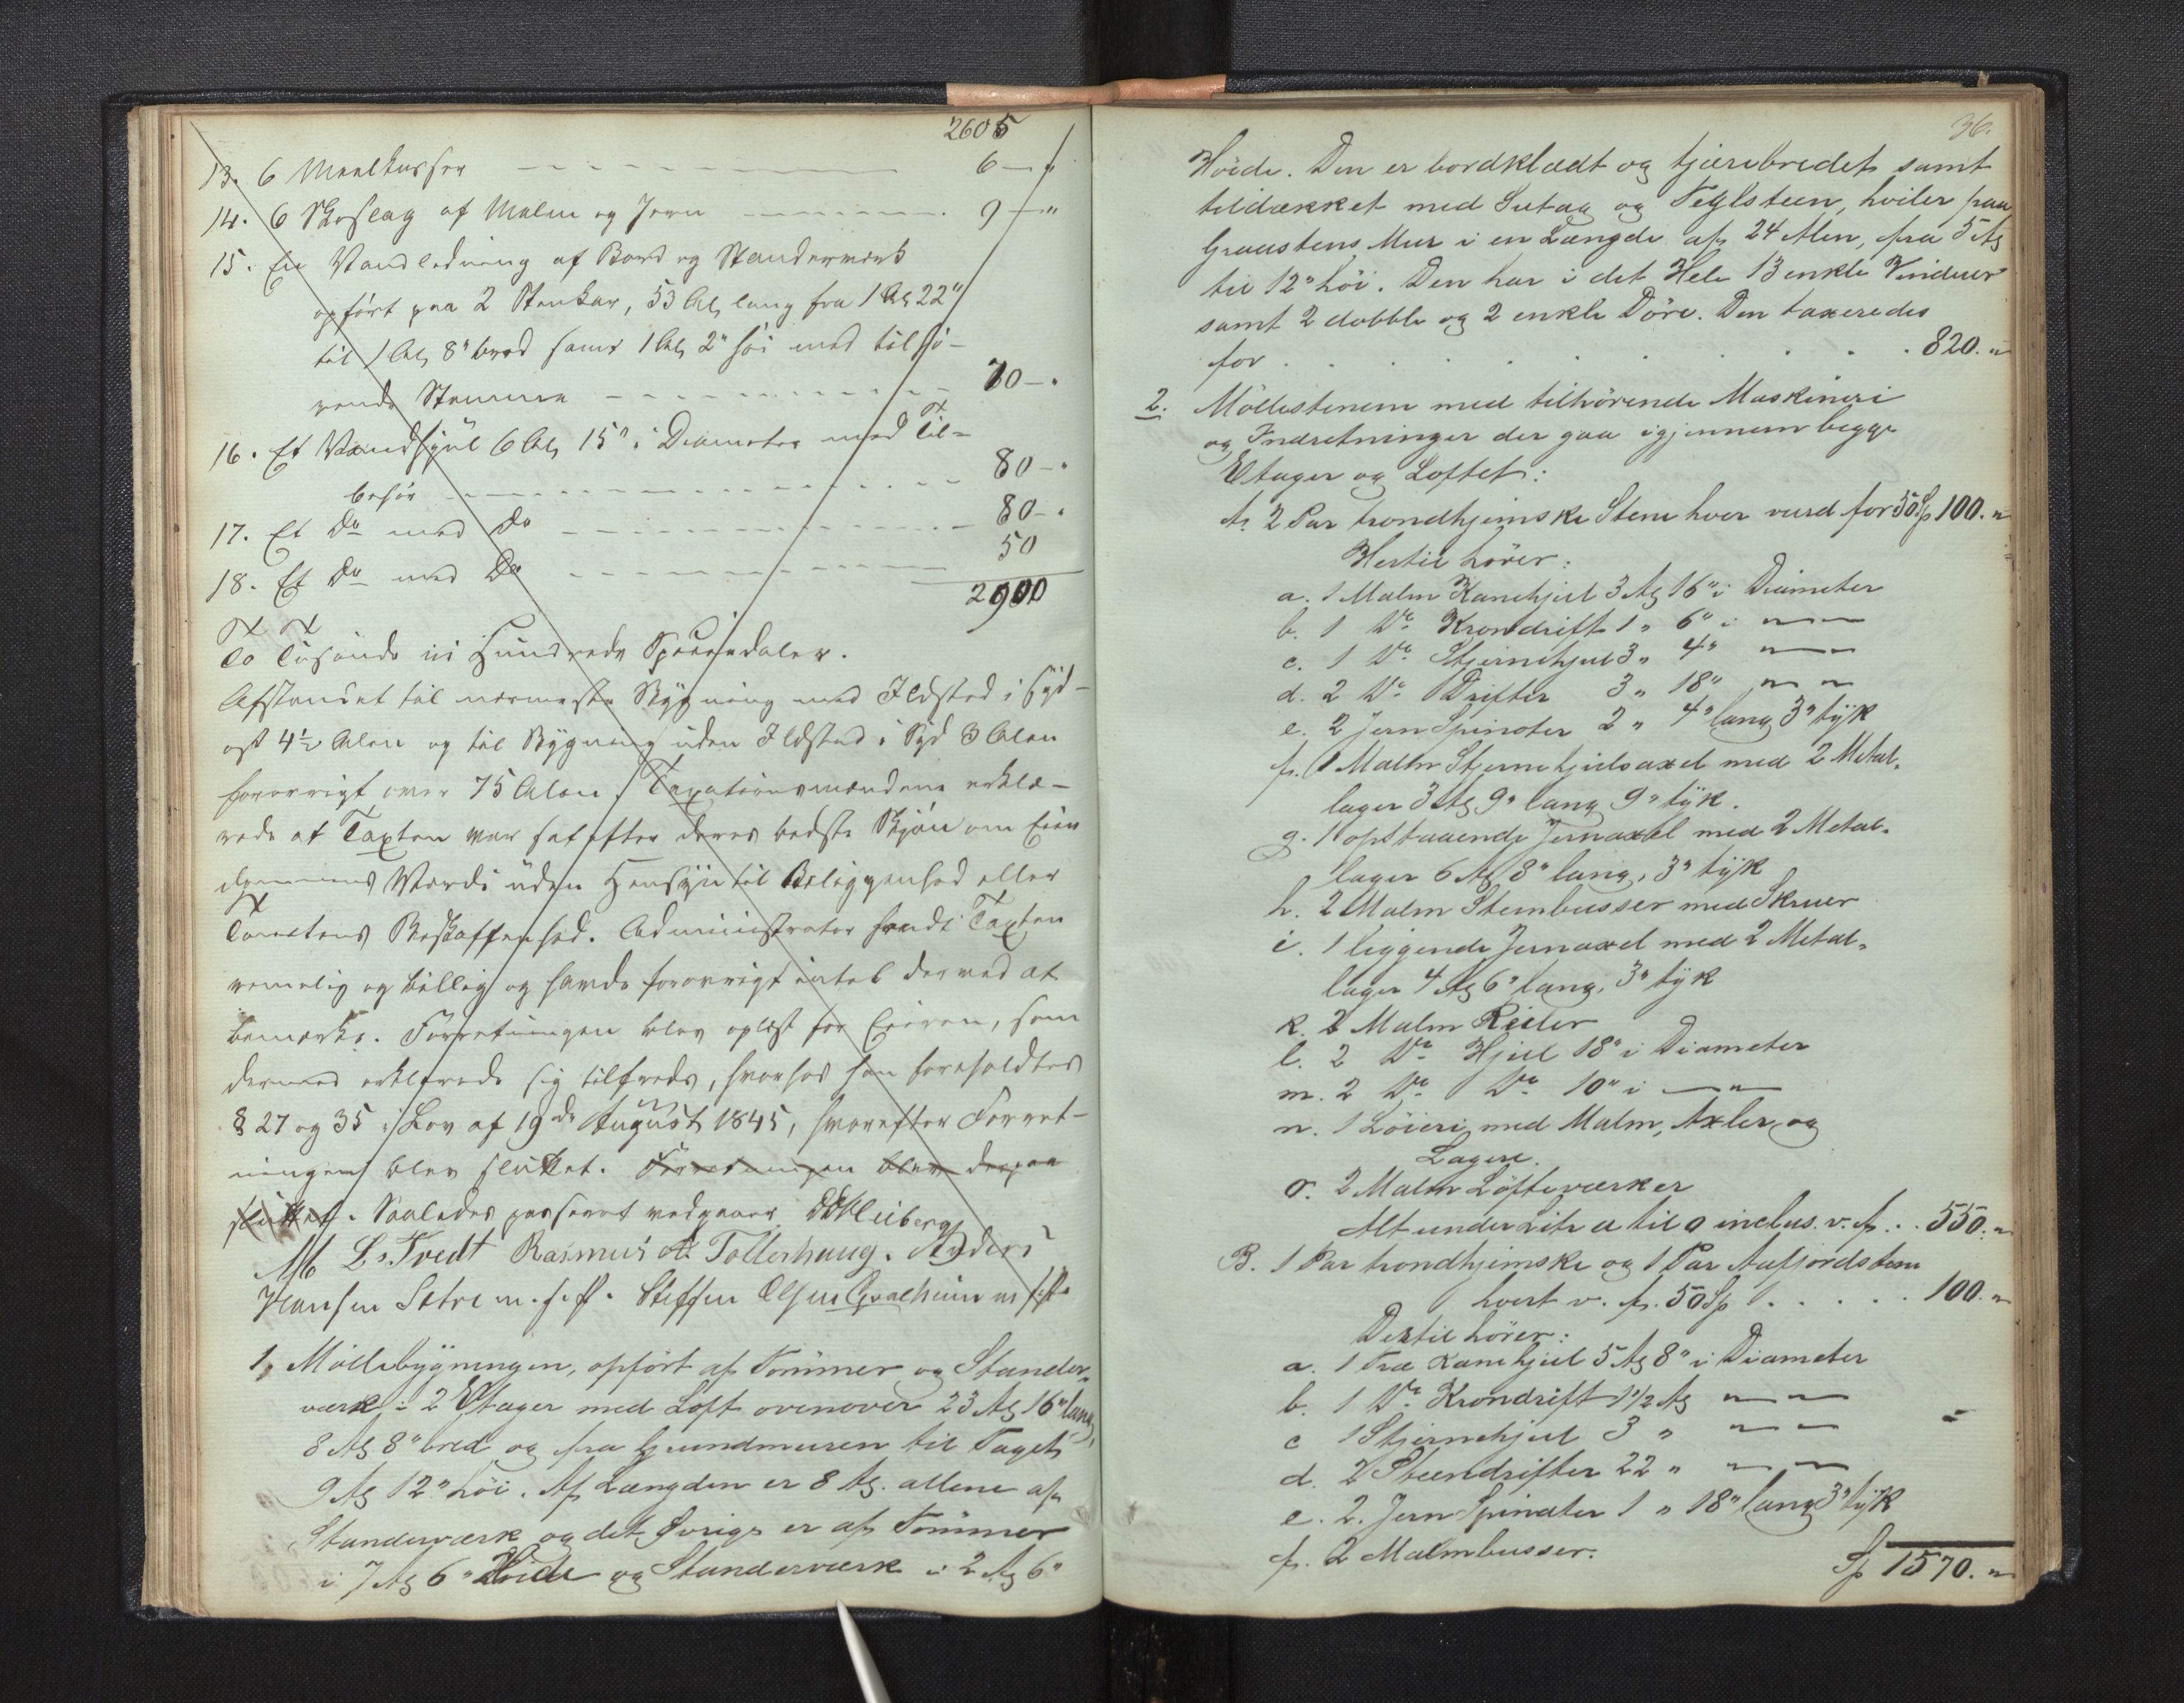 2605
13. 6 Meelkasser - - - 6 - "
14. 6 Skoslag af Malm og Jern - - - 9 - "
15. En Vandledning af Bord og Standerværk
opført paa 2 Stenkar, 53 Al, lang fra 1 Al, 22"
til 1 Al, 8" bred samt 1 Al, 2" høi med tilhø-
rende Stemme - - - 70 - "
16. Et Vandhjul 6 Al, 15" i Diameter med Til-
behør - - - 80 - "
17. Et Do med Do - - - 80 - "
18. Et Do med Do - - - 50
2900
To Tusinde ni Hundrede Speciedaler.
Afstandet til nærmeste Bygning med Ildsted i Syd-
ost 4½ Alen og til Bygning uden Ildsted i Syd 3 Alen
forøvrigt over 75 Alen. Taxationsmændene erklæ-
rede at Taxten var sat efter deres bedste Skjøn om Eien
dommens Værdi uden Hensyn til Beliggenhed eller
Tomtens Beskaffenhed. Administrator fandt Taxten
rimelig og billig og havde forøvrigt intet derved at
bemærke. Forretningen blev oplæst for Eieren, som
dermed erklærede sig tilfreds, hvorhos han foreholdtes
§ 27 og 35 i Lov af 19de August 1845, hvorefter Forret-
ningen blev sluttet. Forretningen blev derpaa
sluttet. Saaledes passeret vedgaaer Heiberg
L. Tvedt Rasmus A. Tollerhaug. Anders
Hansen Sætre m. f. P. Steffen Olsen m f. P.
1, Möllebygningen, opført af Tømmer og Stander-
værk i 2 Etager med Loft ovenover 23 Al 16" lang,
8 Al 8" bred og fra Grundmuren til Taget
9 Al 12" høi. Af Længden er 8 Al. allene af
Standerværk og det Øvrige er af Tømmer
i 7 Al 6" Høide og Standerværk i 2 Al 6"
36.
Høide. Den er bordklædt og tjærebredet samt
tildækket med Sutag og Teglsteen, hviler paa
Graastens Mur i en Længde af 24 Alen, fra 5 Al
til 12" høi. Den har i det Hele 13 enkle Vinduer
samt 2 dobble og 2 enkle Döre. Den taxeredes
for . . . . . 820. "
2. Möllestenene med tilhørende Maskineri
og Indretninger der gaa igjennem begge
Etager og Loftet:
A. 2 Par trondhjemske Stene hver værd for 50 Sp 100. "
Hertil hører:
a. 1 Malm Kamhjul 3 Al 16" i Diameter
b. 1 Do Krondrift 1 " 6" i " "
c. 1 Do Stjernehjul 3 " 4" " "
d. 2 Do Drifter 3 " 18" " "
e. 2 Jern Spindler 2 " 4" lang 3" tyk
f. 1 Malm Stjernehjulsaxel med 2 Metal-
lager 3 Al 9" lang 9" tyk.
g. 1 opstaaende Jernaxel med 2 Metal-
lager 6 Al 8" lang, 3" tyk
h. 2 Malm Stenbusser med Skruer
i. 1 liggende Jernaxel med 2 Metal-
lager 4 Al 6" lang, 3" tyk
k. 2 Malm Reiler
l. 2 Do Hjul 18" i Diameter
m. 2 Do Do 10" i "
n. 1 Löieri med Malm, Axler og
Lagere.
o. 2 Malm Löfteværker
Alt under Litr a til o inclus. v. f. . . 550. "
B. 1 Par trondhjemske og 1 Par Aafjordstene
hvert v. f. 50 Sp . . . . . 100. "
Dertil hører:
a. 1 Træ Kamhjul 5 Al 8" i Diameter
b. 1 Do Krondrift 1 1/2 Al " "
c 1 Stjernehjul 3 " " "
d. 2 Steendrifter 22 " " "
e. 2. Jern Spindler 1 " 18" lang 3" tyk
f. 2 Malmbusser.
Sp 1570. "